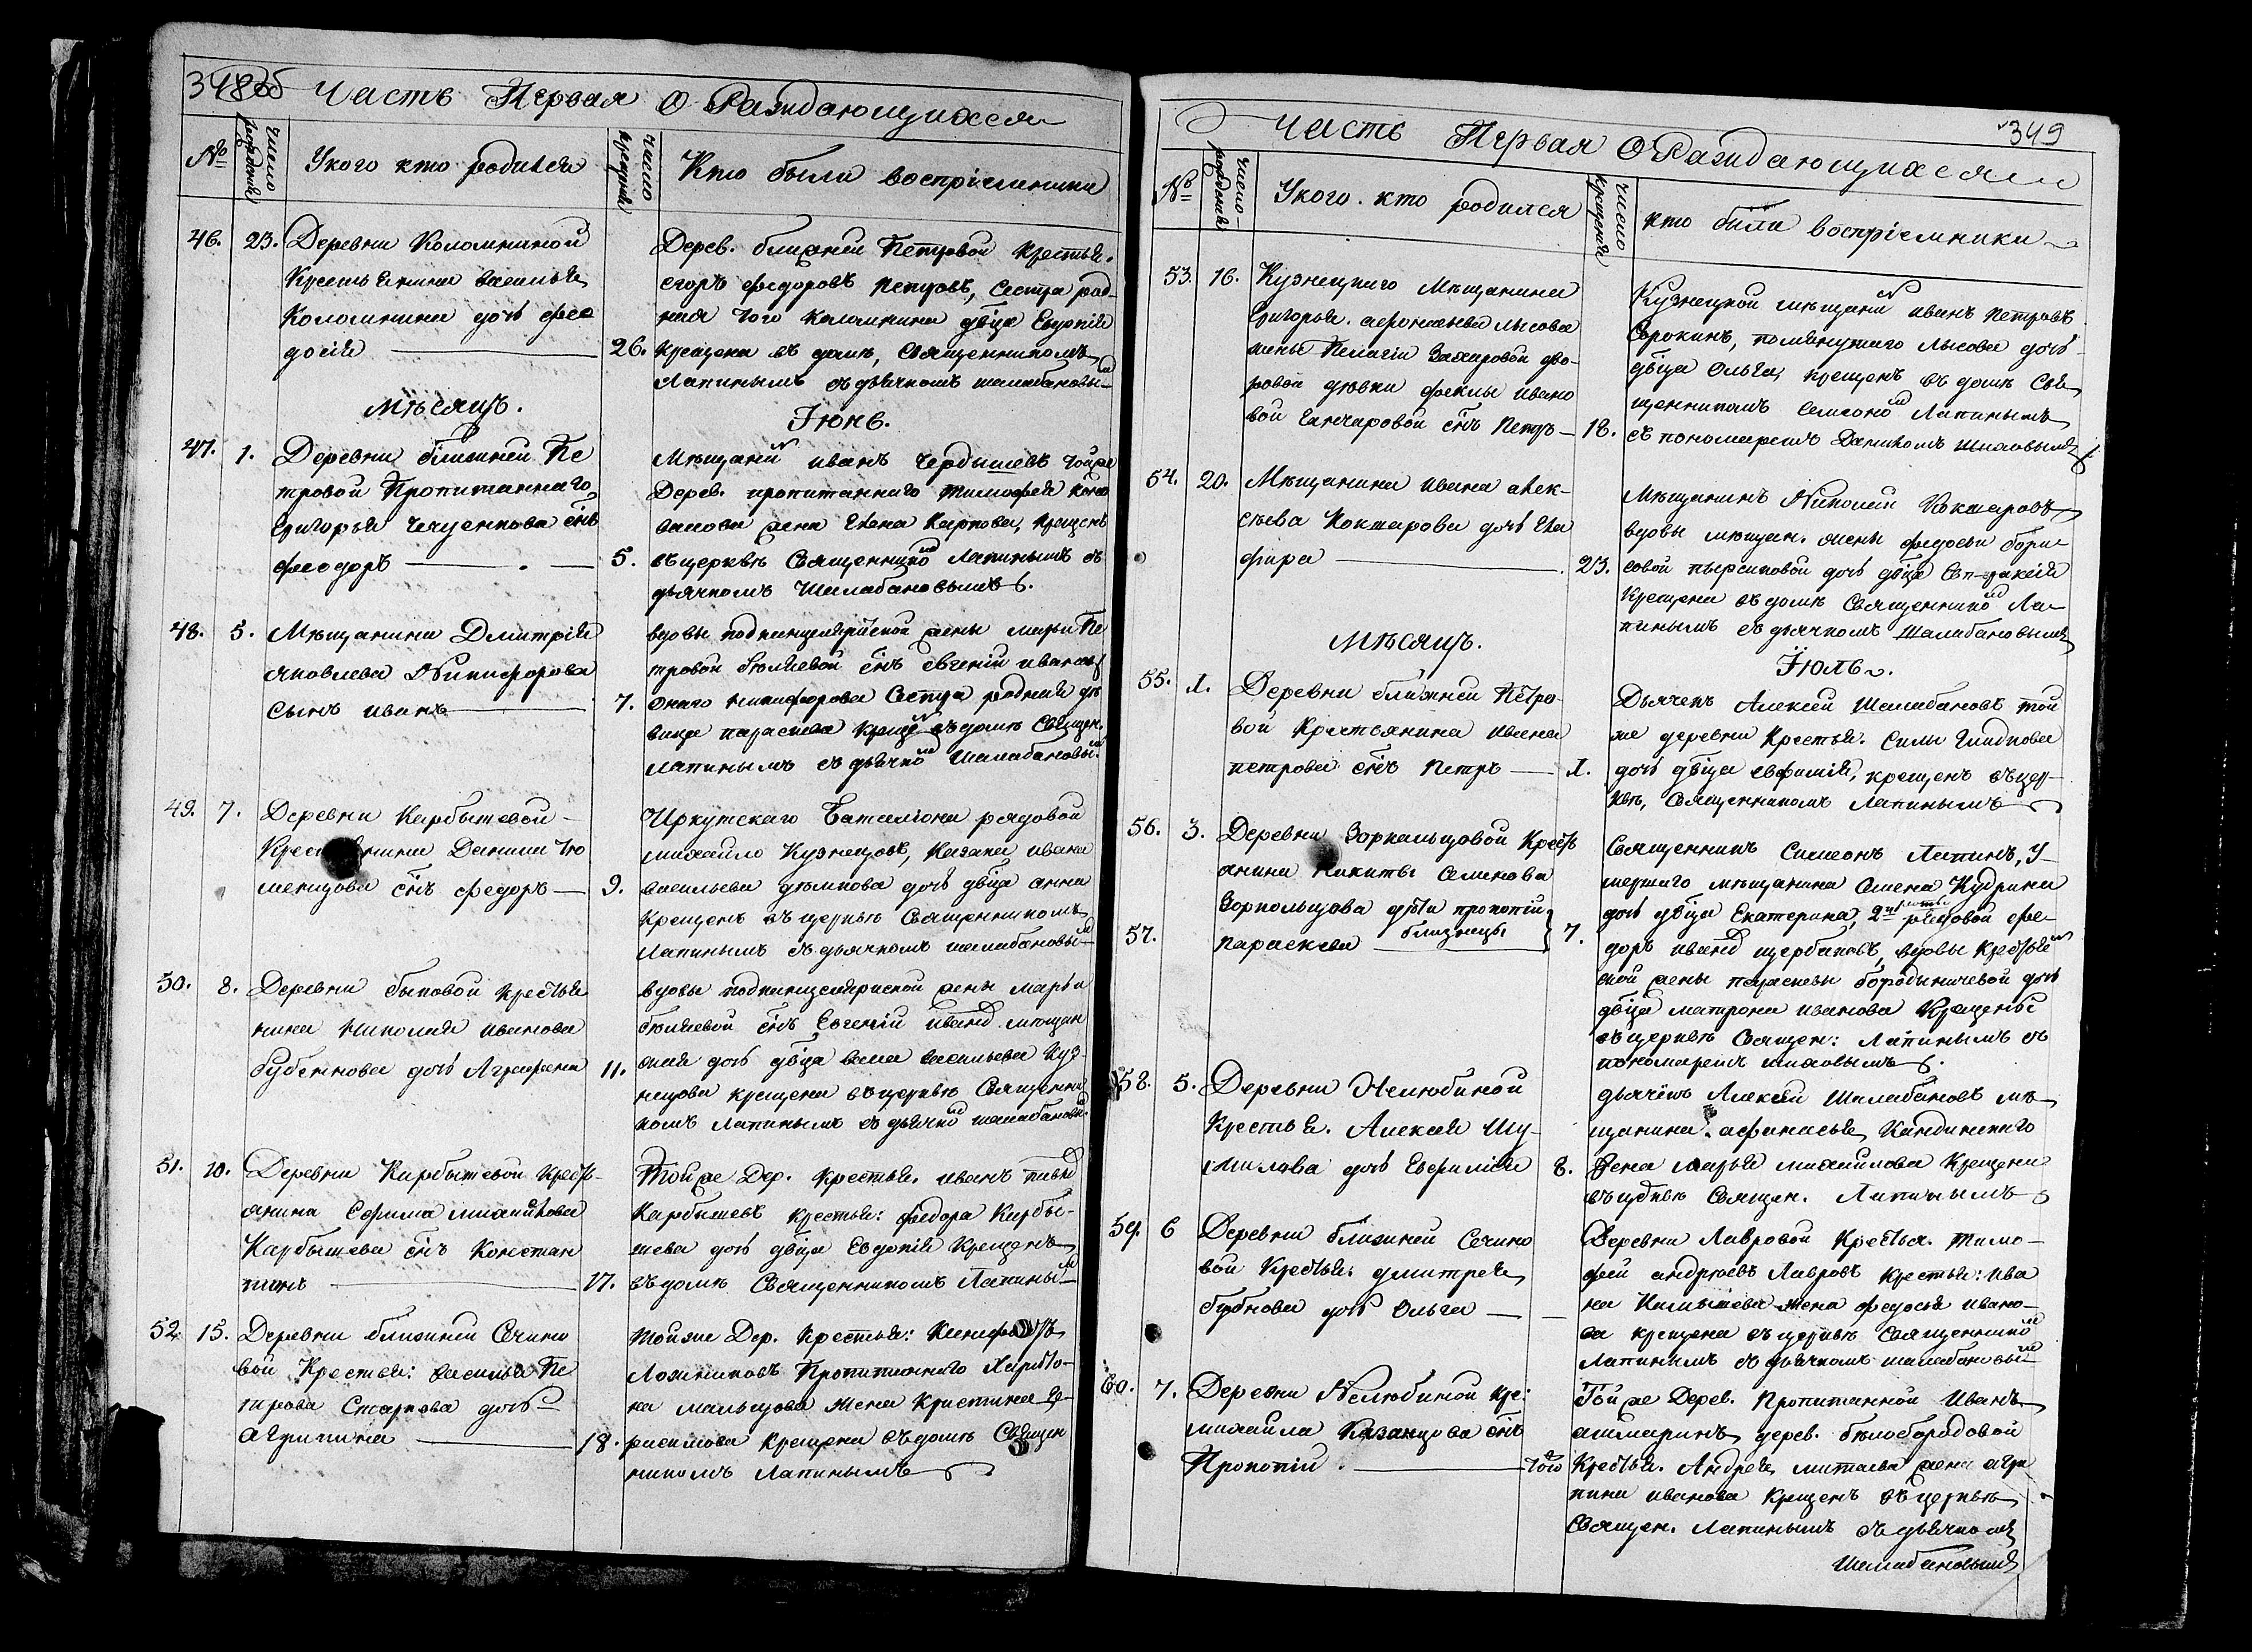 348об Часть Первая О Раждающихся
№ число рождения Укого кто родился число крещения Кто были воспріемники
46. 23. Деревни Коломниной
Крестьянина Василья
Коломнина дочь Фео
досія 26.
Дерев. ближней Петровой Крестья.
Егоръ Федоровъ Петровъ, Сестра род-
ная того Коломнина двица Евдокія
Крещена въ доме, Священникомъ
Лапинымъ съ дьячкомъ Шалабановы-
Мѣсяцъ. Іюнь.
47. 1. Деревни ближней Пе
тровой Пропитаннаго
Григорья снъ
Феодоръ 5.
Мѣщани Иванъ Чербышевъ тойже
Дерев. пропитаннаго Тимофея Коно
валова жена Елена Карпова, Крещенъ
въ церквѣ Священнико Лапинымъ съ
дьячкомъ Шалабановымъ
48. 5. Мѣщанина Дмитрія
Яковлева Никифорова
Сынъ Иванъ 7.
вдовы подканцелярйской жены Марьи Пе
тровой Бѣляевой снъ Евгеній Иванов
онаго Никифорова Сестра родная дѣ
вица Параскева Креще въ доме Священ.
Лапинымъ съ дьячко Шалабановы
49. 7. Деревни Карбышевой
Данила Тю
менцова снъ Федоръ 9.
Иркутскаго Баталіона рядовой
Михаило Кузнецовъ, Казака Ивана
Васильева дочь двица Анна
Крещенъ въ церквѣ Священникомъ
Лапинымъ съ дьячкомъ Шалабановы-
50. 8. Деревни Быковой Крестья
нина Николая Иванова
Бубеннова дочь Аграфена 11.
вдовы подканцелярской жены Марьи
Бѣляевой снъ Евгеній Мещан
ская дочь двица Васильева Куз-
нецова крещена въ церквѣ Священни
комъ Лапинымъ съ дьячко Шалабановы
51. 10. Деревни Карбышевой Кресть-
янина Ефима Михайлова
Карбышева снъ Констан
тинъ 17.
Тойже Дер. Крестья. Иванъ
Карбышевъ Крестья: Федора Карбы-
шева дочь двица Евдокія Крещенъ
въ доме Священникомъ Лапины-
52. 15. Деревни ближней Сечино
вой Крестья: Василья Пе
трова Старкова дочь
Агрипина 18.
Тойже Дер. Крестья:
Ложниковъ Пропитаннаго Харито-
на Мальцова жена Кристина Ге-
расимова Крещена въ доме Священ
никомъ Лапинымъ
349
Часть Первая О Раждающихся
№ число рождения Укого кто родился число крещения кто были воспріемники
53. 16. Кузнецкаго Мѣщанина
Григорья Лысова
жены Пелагіи Захаровой дво-
ровой дѣвки Феклы Ивано
вой Ганчаровой снъ Петръ 18.
Кузнецкой мѣщани Иванъ Петровъ
Сорокинъ, помянутаго Лысова дочь
двица Ольга, крещенъ въ доме Свя
щенникомъ Симеоно Лапинымъ
съ пономаремъ
54. 20. Мѣщанина Ивана Алек-
сѣева Кокшарова дочь Гла
фира 23.
Мѣщанинъ Николай Кокшаровъ
вдовы мѣщан. жены Федосьи Бори-
совой дочь двица Евпраксія
Крещена въ доме Священнико Ла-
пинымъ съ дьячкомъ Шалабановымъ
Мѣсяцъ. Іюль.
55. 1. Деревни ближней Петро-
вой Крестьянина Ивана
Петрова снъ Петръ 1.
Дьячекъ Алексей Шалабановъ той
же деревни Крестья. Силы Гладкова
дочь двица Евфимія, крещенъ въ цер-
квѣ, Священникомъ Лапинымъ
56. 3. Деревни Зоркальцовой Кресть
янина Никиты Семенова
Зоркольцова дѣти Прокопій
57. Параскева близнецы 7.
Священникъ Симеонъ Лапинъ, У-
мершаго мѣщанина Семена Кудрина
дочь двица Екатерина, 2й рядовой Фе-
доръ Щербаковъ, вдовы Крестья
ской жены Параскевы дочь
двица Матрона Иванова Крещены
въ церквѣ Священ: Лапинымъ съ
пономаремъ
58. 5. Деревни Нелюбиной
Крестья. Алексея Шу-
милова дочь Евфимія 8.
дьячекъ Алексей Шалабановъ мѣ
щанина Афанасья Кандинскаго
жена Марья Михайлова Крещена
въ церквѣ Священ. Лапинымъ
59. 6 Деревни ближней Сечино
вой Крестья: Дмитрея
Бубнова дочь Ольга
Деревни Лавровой Крестья. Тимо-
фей Андреевъ Лавровъ Крестья: Ива
на жена Федосья Ивано-
ва крещена въ церквѣ Священнико
Лапинымъ съ дьячкомъ Шалабановы
60. 7. Деревни Нелюбиной Кре:
Михаила Казанцова снъ
Прокопій того
Тойже Дерев. Пропитанной Иванъ
дерев. Белобородовой
Крестья. Андрея жена Агри
пина Иванова Крещенъ въ церквѣ
Священ. Лапинымъ съ дьячкомъ
Шалабановымъ